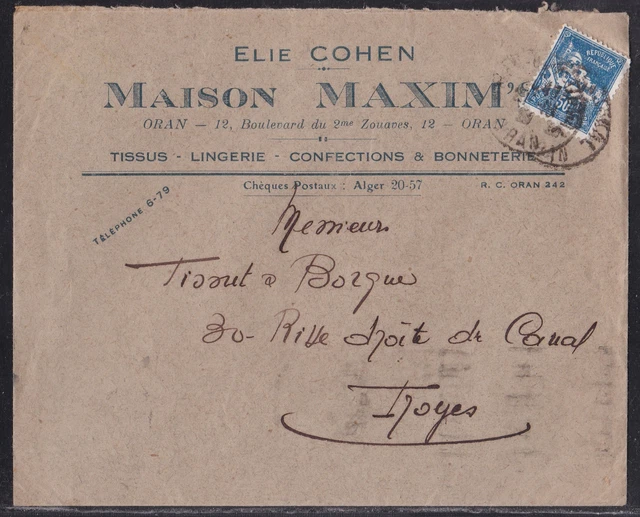 ELIE COHEN
MAISON MAXIM'S
ORAN — 12, Boulevard du 2me Zouaves, 12 — ORAN
TISSUS - LINGERIE - CONFECTIONS & BONNETERIE
Chèques Postaux : Alger 20-57
R. C. ORAN 242
TÉLÉPHONE 6-79
REPUBLIQUE
FRANÇAISE
ORAN
Messieurs
Tissut & Borgue
30 - Rive droite de Canal
Troyes